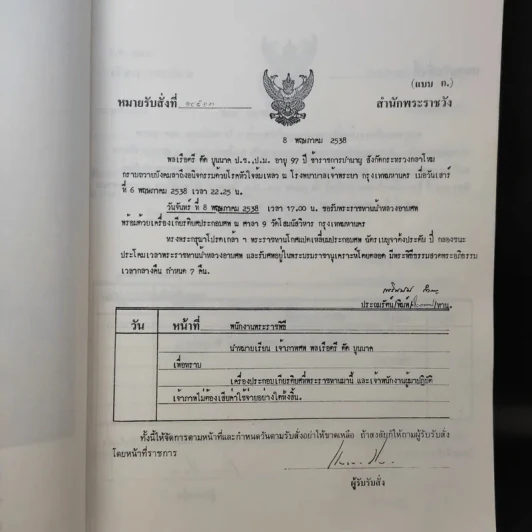 (แบบ ก.)
หมายรับสั่งที่
สำนักพระราชวัง
8 พฤษภาคม 2538
พลเรือตรี คัด บุนนาค ป.ช.,ป.ม. อายุ 97 ปี ข้าราชการบำนาญ สังกัดกระทรวงกลาโหม
กราบถวายบังคมลาถึงอนิจกรรมด้วยโรคหัวใจล้มเหลว ณ โรงพยาบาลเจ้าพระยา กรุงเทพมหานคร เมื่อวันเสาร์
ที่ 6 พฤษภาคม 2538 เวลา 22.25 น.
วันจันทร์ ที่ 8 พฤษภาคม 2538 เวลา 17.00 น. ขอรับพระราชทานน้ำหลวงอาบศพ
พร้อมด้วยเครื่องเกียรติยศประกอบศพ ณ ศาลา 9 วัดโสมนัสวิหาร กรุงเทพมหานคร
ทรงพระกรุณาโปรดเกล้า ฯ พระราชทานโกศแปดเหลี่ยมประกอบศพ ฉัตรเบญจาตั้งประดับ ปี่ กลองชนะ
ประโคมเวลาพระราชทานน้ำหลวงอาบศพ และรับศพอยู่ในพระบรมราชานุเคราะห์โดยตลอด มีพระพิธีธรรมสวดพระอภิธรรม
เวลากลางคืน กำหนด 7 คืน
ประณมรัตน์/พิมพ์ /ทาน.
วัน หน้าที่ พนักงานพระราชพิธี
นำหมายเรียน เจ้าภาพศพ พลเรือตรี คัด บุนนาค
เพื่อทราบ
เครื่องประกอบเกียรติยศที่พระราชทานมานี้ และเจ้าพนักงานผู้มาปฏิบัติ
เจ้าภาพไม่ต้องเสียค่าใช้จ่ายอย่างใดทั้งสิ้น.
ทั้งนี้ให้จัดการตามหน้าที่และกำหนดวันตามรับสั่งอย่าให้ขาดเหลือ ถ้าสงสัยก็ให้ถามผู้รับรับสั่ง
โดยหน้าที่ราชการ
ผู้รับรับสั่ง